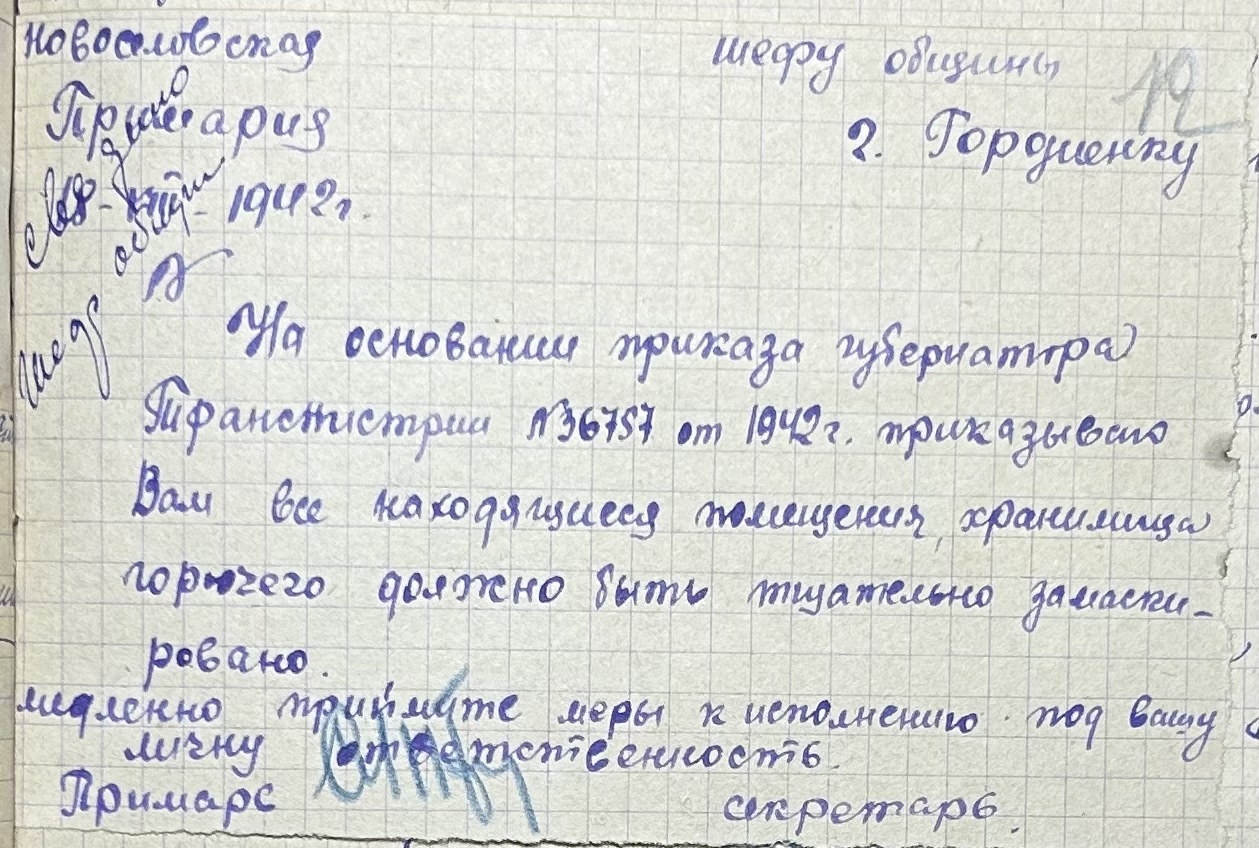 Новоселовская
шефу общины
12
Примария
г. Гордиенку
1942г.
На основании приказа губернатора
Транснистрии №36757 от 1942г. приказываю
Вам все находящиеся помещения, хранилища
горючего должно быть тщательно замаски-
ровано.
медленно приймите меры к исполнению под вашу
личну ответственность.
Примарь
секретарь.